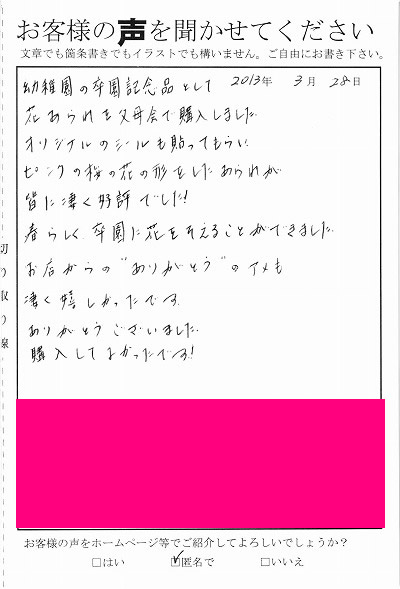 お客様の声を聞かせてください
文章でも箇条書きでもイラストでも構いません。ご自由にお書き下さい。
2013年 3月 28日
幼稚園の卒園記念品として
花あられを父母会で購入しました
オリジナルのシールも貼ってもらい
ピンクの桜の花の形をしたあられが
皆に凄く好評でした!
春らしく、卒園に花をそえることができました.
お店からの"ありがとう"のアメも
凄く嬉しかったです.
ありがとうございました.
購入してよかったです!
切り取り線
お客様の声をホームページ等でご紹介してよろしいでしょうか?
□はい ☑匿名で □いいえ